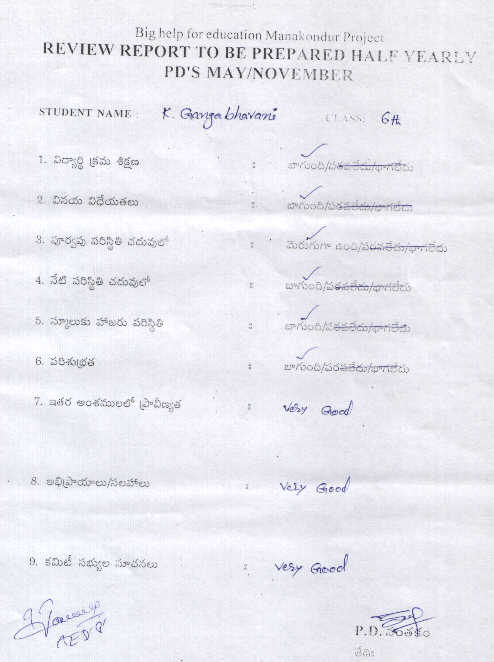 Big help for education Manakondur Project
REVIEW REPORT TO BE PREPARED HALF YEARLY
PD'S MAY/NOVEMBER
STUDENT NAME : K. Gangabhavani CLASS: 6th
1. విద్యార్థి క్రమ శిక్షణ : బాగుంది/పరవలేదు/బాగలేదు
2. వినయ విధేయతలు : బాగుంది/పరవలేదు/బాగలేదు
3. పూర్వపు పరిస్థితి చదువులో : మెరుగుగా ఉంది/పరవలేదు/బాగలేదు
4. నేటి పరిస్థితి చదువులో : బాగుంది/పరవలేదు/బాగలేదు
5. స్కూలుకు హాజరు పరిస్థితి : బాగుంది/పరవలేదు/బాగలేదు
6. పరిశుభ్రత : బాగుంది/పరవలేదు/బాగలేదు
7. ఇతర అంశములలో ప్రావీణ్యత : Very Good
8. అభిప్రాయాలు/సలహాలు : Very Good
9. కమిటీ సభ్యుల సూచనలు : Very Good
P.D. సంతకం
తేది: